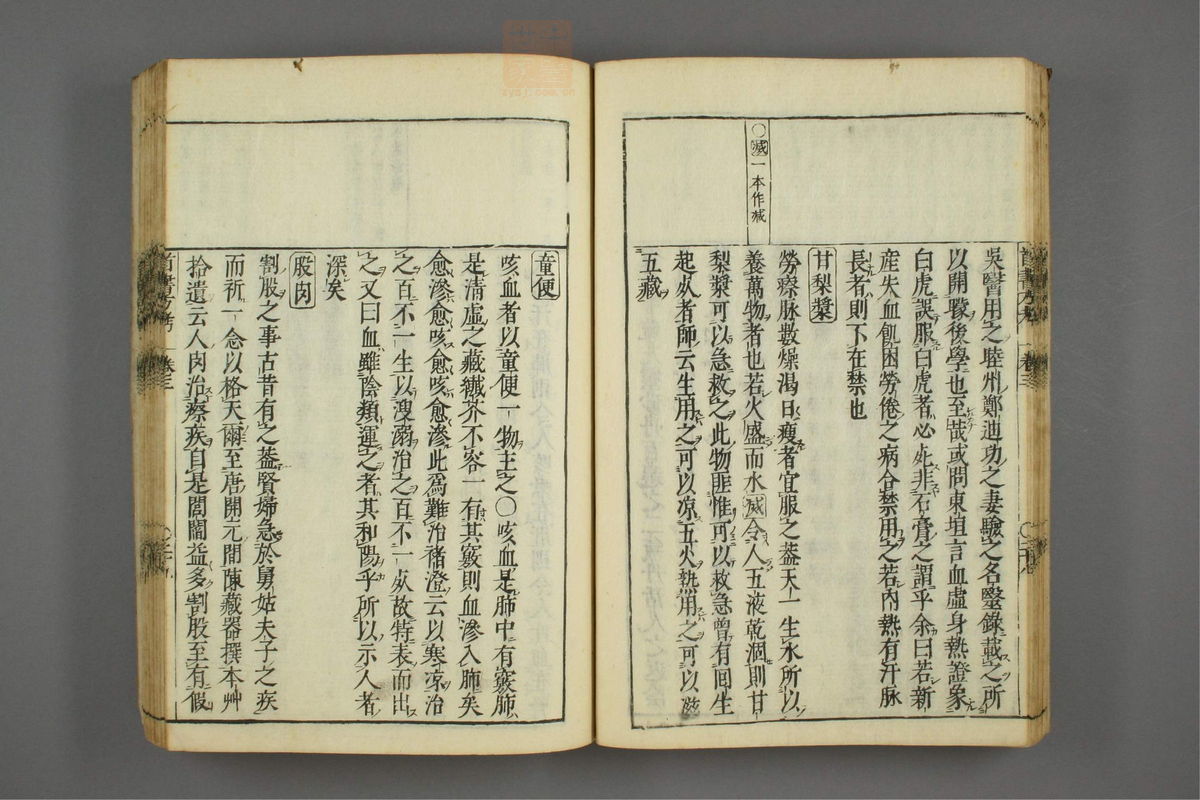 ○㓕一本作减
吳醫用之睦州鄭迪功之妻驗之名醫錄載之所
以開矇後學也至哉或問東垣言血虛身熱證象
白虎誤服白虎者必死非石膏之謂乎余曰若新
産失血飢困勞倦之病合禁用之若內熱有汗脉
長者則不在禁也
甘梨漿
勞瘵脉數燥渴日瘦者宜服之葢天一生水所以
養萬物者也若火盛而水㓕令人五液乾涸則甘
梨漿可以急救之此物匪惟可以救急曾有囬生
起死者師云生用之可以凉五火熟用之可以滋
五藏
童便
咳血者以童便一物主之○咳血是肺中有竅肺
是清虛之藏纎芥不容一有其竅則血滲入肺矣
愈滲愈咳愈咳愈滲此爲難治褚澄云以寒凉治
之百不一生以溲溺治之百不一死故特表而出
之又曰血雖陰類運之者其和陽乎所以示人者
深矣
股肉
割股之事古昔有之葢賢婦急於舅姑夫子之疾
而祈一念以格天爾至唐開元間陳藏器撰本艸
拾遺云人肉治瘵疾自是閭閻益多割股至有假